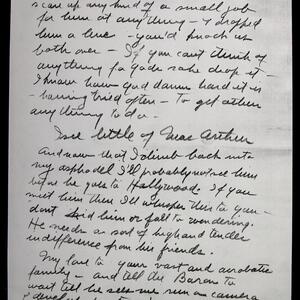 scare up any kind of a small job
for him at anything - I dropped
him a line - you'd knock us
both over - If you can't think of
anything for gods sake drop it -
I know how god damn hard it is
- having tried often - to get others
anything to do.
I see little of MacArthur
And now that I climb back into
my asphodel I'll probably not see him
before he goes to Hollywood. If you
meet him then I'll whisper this to you -
don't him or fall to wondering.
He needs a sort of high and tender
indifference from his friends.
My love to your vast and acrobatic
family - and tell the Baron to
wait till he sees me run a camera